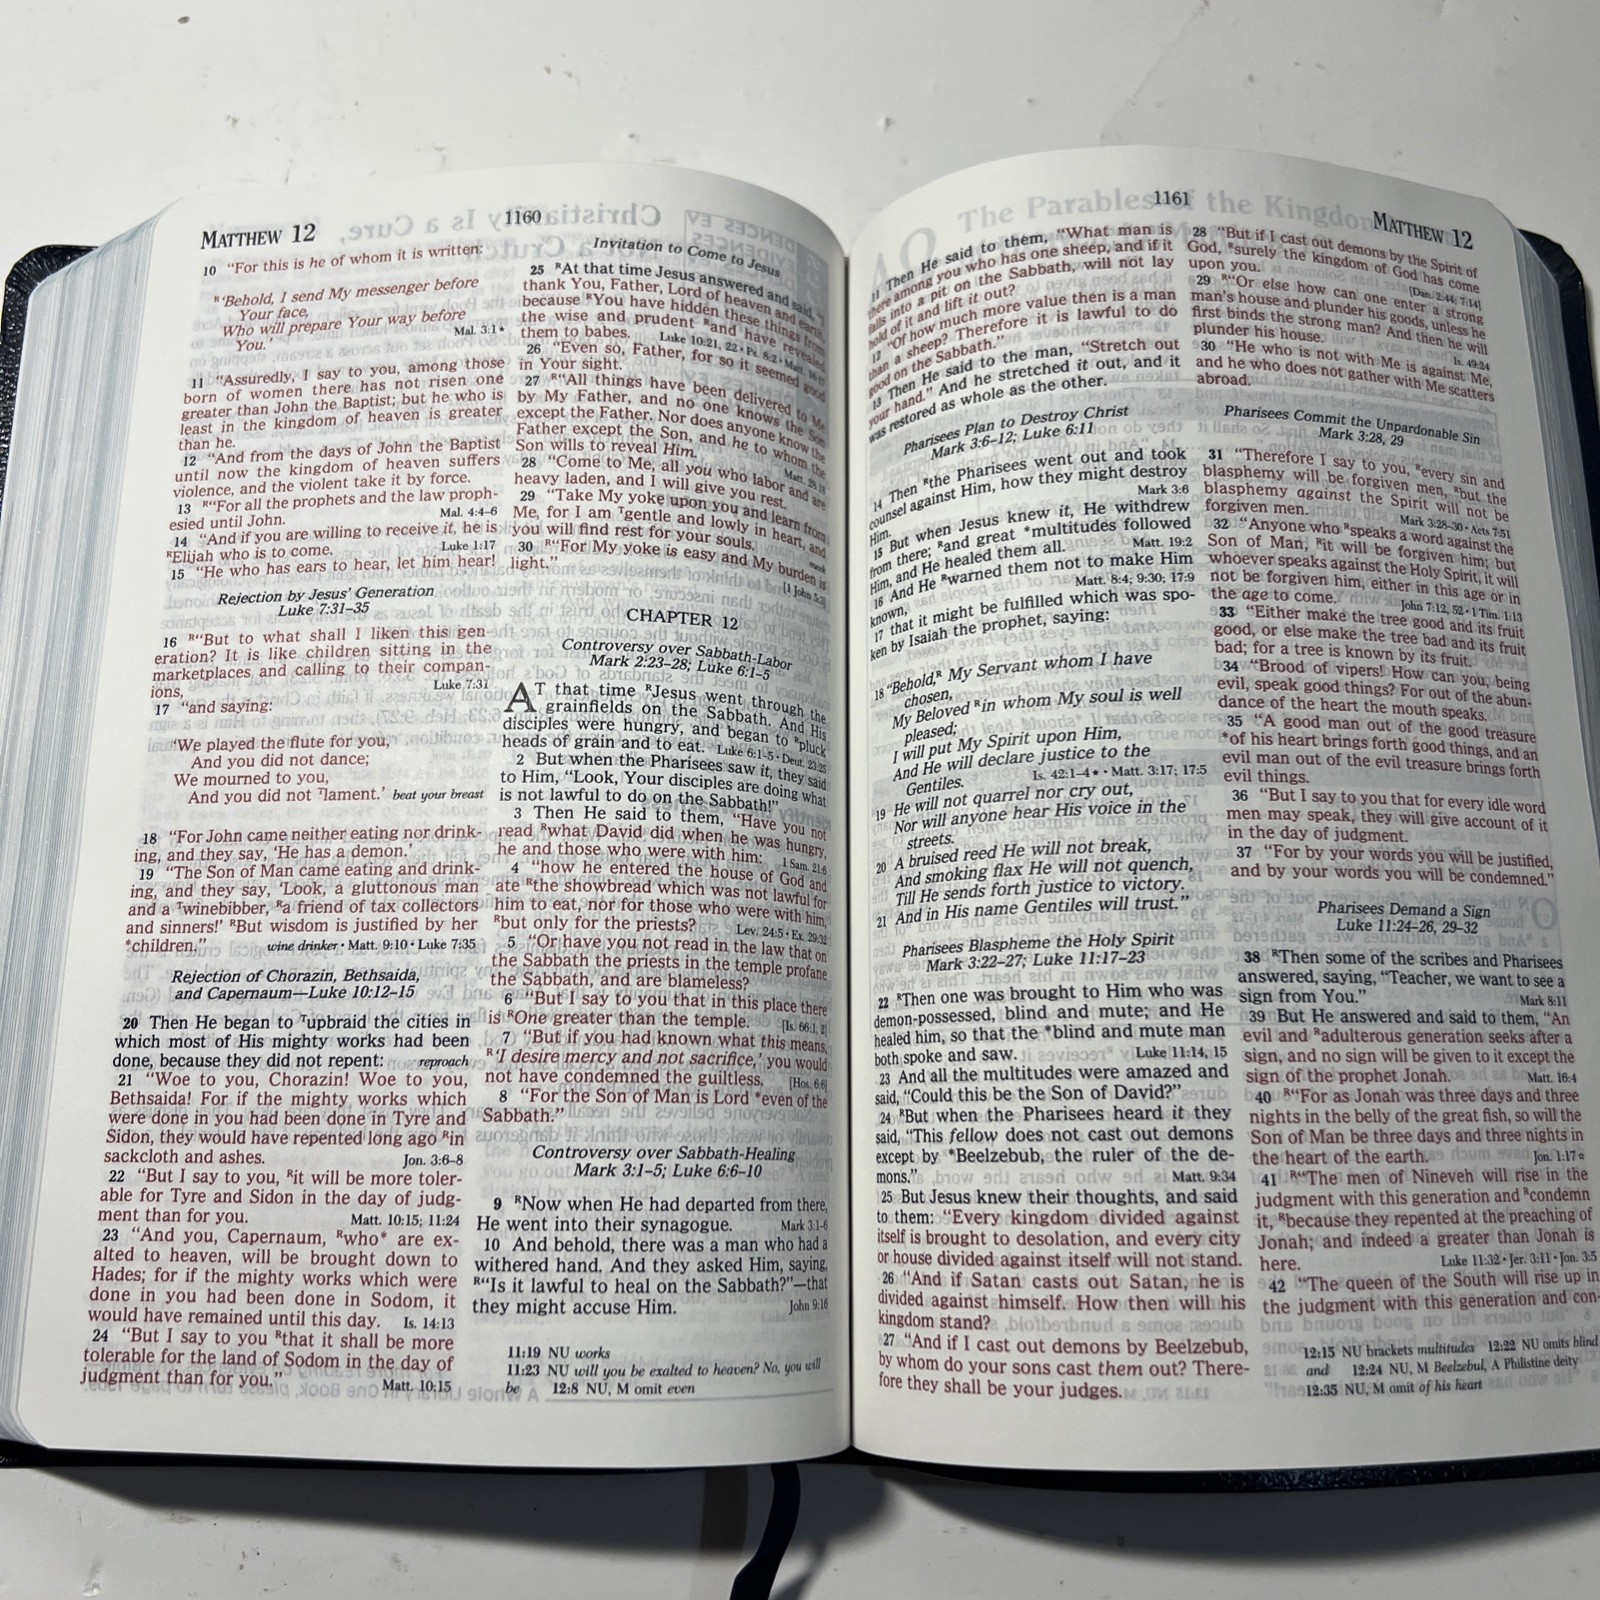 MATTHEW 12
1160
10 "For this is he of whom it is written:
R'Behold, I send My messenger before
Your face,
Who will prepare Your way before
You.' Mal. 3:1★
11 "Assuredly, I say to you, among those
born of women there has not risen one
greater than John the Baptist; but he who is
least in the kingdom of heaven is greater
than he.
12 "And from the days of John the Baptist
until now the kingdom of heaven suffers
violence, and the violent take it by force.
13 R"For all the prophets and the law proph-
esied until John. Mal. 4:4–6
14 "And if you are willing to receive it, he is
RElijah who is to come. Luke 1:17
15 "He who has ears to hear, let him hear!
Rejection by Jesus' Generation
Luke 7:31–35
16 R"But to what shall I liken this gen-
eration? It is like children sitting in the
marketplaces and calling to their compan-
ions, Luke 7:31
17 "and saying:
'We played the flute for you,
And you did not dance;
We mourned to you,
And you did not Tlament.' beat your breast
18 "For John came neither eating nor drink-
ing, and they say, 'He has a demon.'
19 "The Son of Man came eating and drink-
ing, and they say, 'Look, a gluttonous man
and a Twinebibber, Ra friend of tax collectors
and sinners!' RBut wisdom is justified by her
*children." wine drinker • Matt. 9:10 • Luke 7:35
Rejection of Chorazin, Bethsaida,
and Capernaum—Luke 10:12–15
20 Then He began to Tupbraid the cities in
which most of His mighty works had been
done, because they did not repent: reproach
21 "Woe to you, Chorazin! Woe to you,
Bethsaida! For if the mighty works which
were done in you had been done in Tyre and
Sidon, they would have repented long ago Rin
sackcloth and ashes. Jon. 3:6–8
22 "But I say to you, Rit will be more toler-
able for Tyre and Sidon in the day of judg-
ment than for you. Matt. 10:15; 11:24
23 "And you, Capernaum, Rwho* are ex-
alted to heaven, will be brought down to
Hades; for if the mighty works which were
done in you had been done in Sodom, it
would have remained until this day. Is. 14:13
24 "But I say to you Rthat it shall be more
tolerable for the land of Sodom in the day of
judgment than for you." Matt. 10:15
Invitation to Come to Jesus
25 RAt that time Jesus answered and said, "I
thank You, Father, Lord of heaven and earth,
because RYou have hidden these things from
the wise and prudent Rand have revealed
them to babes. Luke 10:21, 22 • Ps. 8:2 • Matt. 16:17
26 "Even so, Father, for so it seemed good
in Your sight.
27 R"All things have been delivered to Me
by My Father, and no one knows the Son
except the Father. Nor does anyone know the
Father except the Son, and he to whom the
Son wills to reveal Him. Matt. 28:18
28 "Come to Me, all you who labor and are
heavy laden, and I will give you rest.
29 "Take My yoke upon you and learn from
Me, for I am Tgentle and lowly in heart, and
you will find rest for your souls. meek
30 R"For My yoke is easy and My burden is
light." [1 John 5:3]
CHAPTER 12
Controversy over Sabbath-Labor
Mark 2:23–28; Luke 6:1–5
AT that time RJesus went through the
grainfields on the Sabbath. And His
disciples were hungry, and began to Rpluck
heads of grain and to eat. Luke 6:1–5 • Deut. 23:25
2 But when the Pharisees saw it, they said
to Him, "Look, Your disciples are doing what
is not lawful to do on the Sabbath!"
3 Then He said to them, "Have you not
read Rwhat David did when he was hungry,
he and those who were with him: 1 Sam. 21:6
4 "how he entered the house of God and
ate Rthe showbread which was not lawful for
him to eat, nor for those who were with him,
Rbut only for the priests? Lev. 24:5 • Ex. 29:32
5 "Or have you not read in the law that on
the Sabbath the priests in the temple profane
the Sabbath, and are blameless?
6 "But I say to you that in this place there
is ROne greater than the temple. [Is. 66:1, 2]
7 "But if you had known what this means,
R'I desire mercy and not sacrifice,' you would
not have condemned the guiltless. [Hos. 6:6]
8 "For the Son of Man is Lord *even of the
Sabbath."
Controversy over Sabbath-Healing
Mark 3:1–5; Luke 6:6–10
9 RNow when He had departed from there,
He went into their synagogue. Mark 3:1–6
10 And behold, there was a man who had a
withered hand. And they asked Him, saying,
R"Is it lawful to heal on the Sabbath?"—that
they might accuse Him. John 9:16
11:19 NU works
11:23 NU will you be exalted to heaven? No, you will
be 12:8 NU, M omit even
1161
MATTHEW 12
11 Then He said to them, "What man is
there among you who has one sheep, and if it
falls into a pit on the Sabbath, will not lay
hold of it and lift it out?
12 "Of how much more value then is a man
than a sheep? Therefore it is lawful to do
good on the Sabbath."
13 Then He said to the man, "Stretch out
your hand." And he stretched it out, and it
was restored as whole as the other.
Pharisees Plan to Destroy Christ
Mark 3:6–12; Luke 6:11
14 Then Rthe Pharisees went out and took
counsel against Him, how they might destroy
Him. Mark 3:6
15 But when Jesus knew it, He withdrew
from there; Rand great *multitudes followed
Him, and He healed them all. Matt. 19:2
16 And He Rwarned them not to make Him
known, Matt. 8:4; 9:30; 17:9
17 that it might be fulfilled which was spo-
ken by Isaiah the prophet, saying:
18 "Behold,R My Servant whom I have
chosen,
My Beloved Rin whom My soul is well
pleased;
I will put My Spirit upon Him,
And He will declare justice to the
Gentiles. Is. 42:1–4★ • Matt. 3:17; 17:5
19 He will not quarrel nor cry out,
Nor will anyone hear His voice in the
streets.
20 A bruised reed He will not break,
And smoking flax He will not quench,
Till He sends forth justice to victory.
21 And in His name Gentiles will trust."
Pharisees Blaspheme the Holy Spirit
Mark 3:22–27; Luke 11:17–23
22 RThen one was brought to Him who was
demon-possessed, blind and mute; and He
healed him, so that the *blind and mute man
both spoke and saw. Luke 11:14, 15
23 And all the multitudes were amazed and
said, "Could this be the Son of David?"
24 RBut when the Pharisees heard it they
said, "This fellow does not cast out demons
except by *Beelzebub, the ruler of the de-
mons." Matt. 9:34
25 But Jesus knew their thoughts, and said
to them: "Every kingdom divided against
itself is brought to desolation, and every city
or house divided against itself will not stand.
26 "And if Satan casts out Satan, he is
divided against himself. How then will his
kingdom stand?
27 "And if I cast out demons by Beelzebub,
by whom do your sons cast them out? There-
fore they shall be your judges.
28 "But if I cast out demons by the Spirit of
God, Rsurely the kingdom of God has come
upon you. [Dan. 2:44; 7:14]
29 R"Or else how can one enter a strong
man's house and plunder his goods, unless he
first binds the strong man? And then he will
plunder his house. Is. 49:24
30 "He who is not with Me is against Me,
and he who does not gather with Me scatters
abroad.
Pharisees Commit the Unpardonable Sin
Mark 3:28, 29
31 "Therefore I say to you, Revery sin and
blasphemy will be forgiven men, Rbut the
blasphemy against the Spirit will not be
forgiven men. Mark 3:28–30 • Acts 7:51
32 "Anyone who Rspeaks a word against the
Son of Man, Rit will be forgiven him; but
whoever speaks against the Holy Spirit, it will
not be forgiven him, either in this age or in
the age to come. John 7:12, 52 • 1 Tim. 1:13
33 "Either make the tree good and its fruit
good, or else make the tree bad and its fruit
bad; for a tree is known by its fruit.
34 "Brood of vipers! How can you, being
evil, speak good things? For out of the abun-
dance of the heart the mouth speaks.
35 "A good man out of the good treasure
*of his heart brings forth good things, and an
evil man out of the evil treasure brings forth
evil things.
36 "But I say to you that for every idle word
men may speak, they will give account of it
in the day of judgment.
37 "For by your words you will be justified,
and by your words you will be condemned."
Pharisees Demand a Sign
Luke 11:24–26, 29–32
38 RThen some of the scribes and Pharisees
answered, saying, "Teacher, we want to see a
sign from You." Mark 8:11
39 But He answered and said to them, "An
evil and Radulterous generation seeks after a
sign, and no sign will be given to it except the
sign of the prophet Jonah. Matt. 16:4
40 R"For as Jonah was three days and three
nights in the belly of the great fish, so will the
Son of Man be three days and three nights in
the heart of the earth. Jon. 1:17★
41 R"The men of Nineveh will rise in the
judgment with this generation and Rcondemn
it, Rbecause they repented at the preaching of
Jonah; and indeed a greater than Jonah is
here. Luke 11:32 • Jer. 3:11 • Jon. 3:5
42 "The queen of the South will rise up in
the judgment with this generation and con-
12:15 NU brackets multitudes 12:22 NU omits blind
and 12:24 NU, M Beelzebul, A Philistine deity
12:35 NU, M omit of his heart